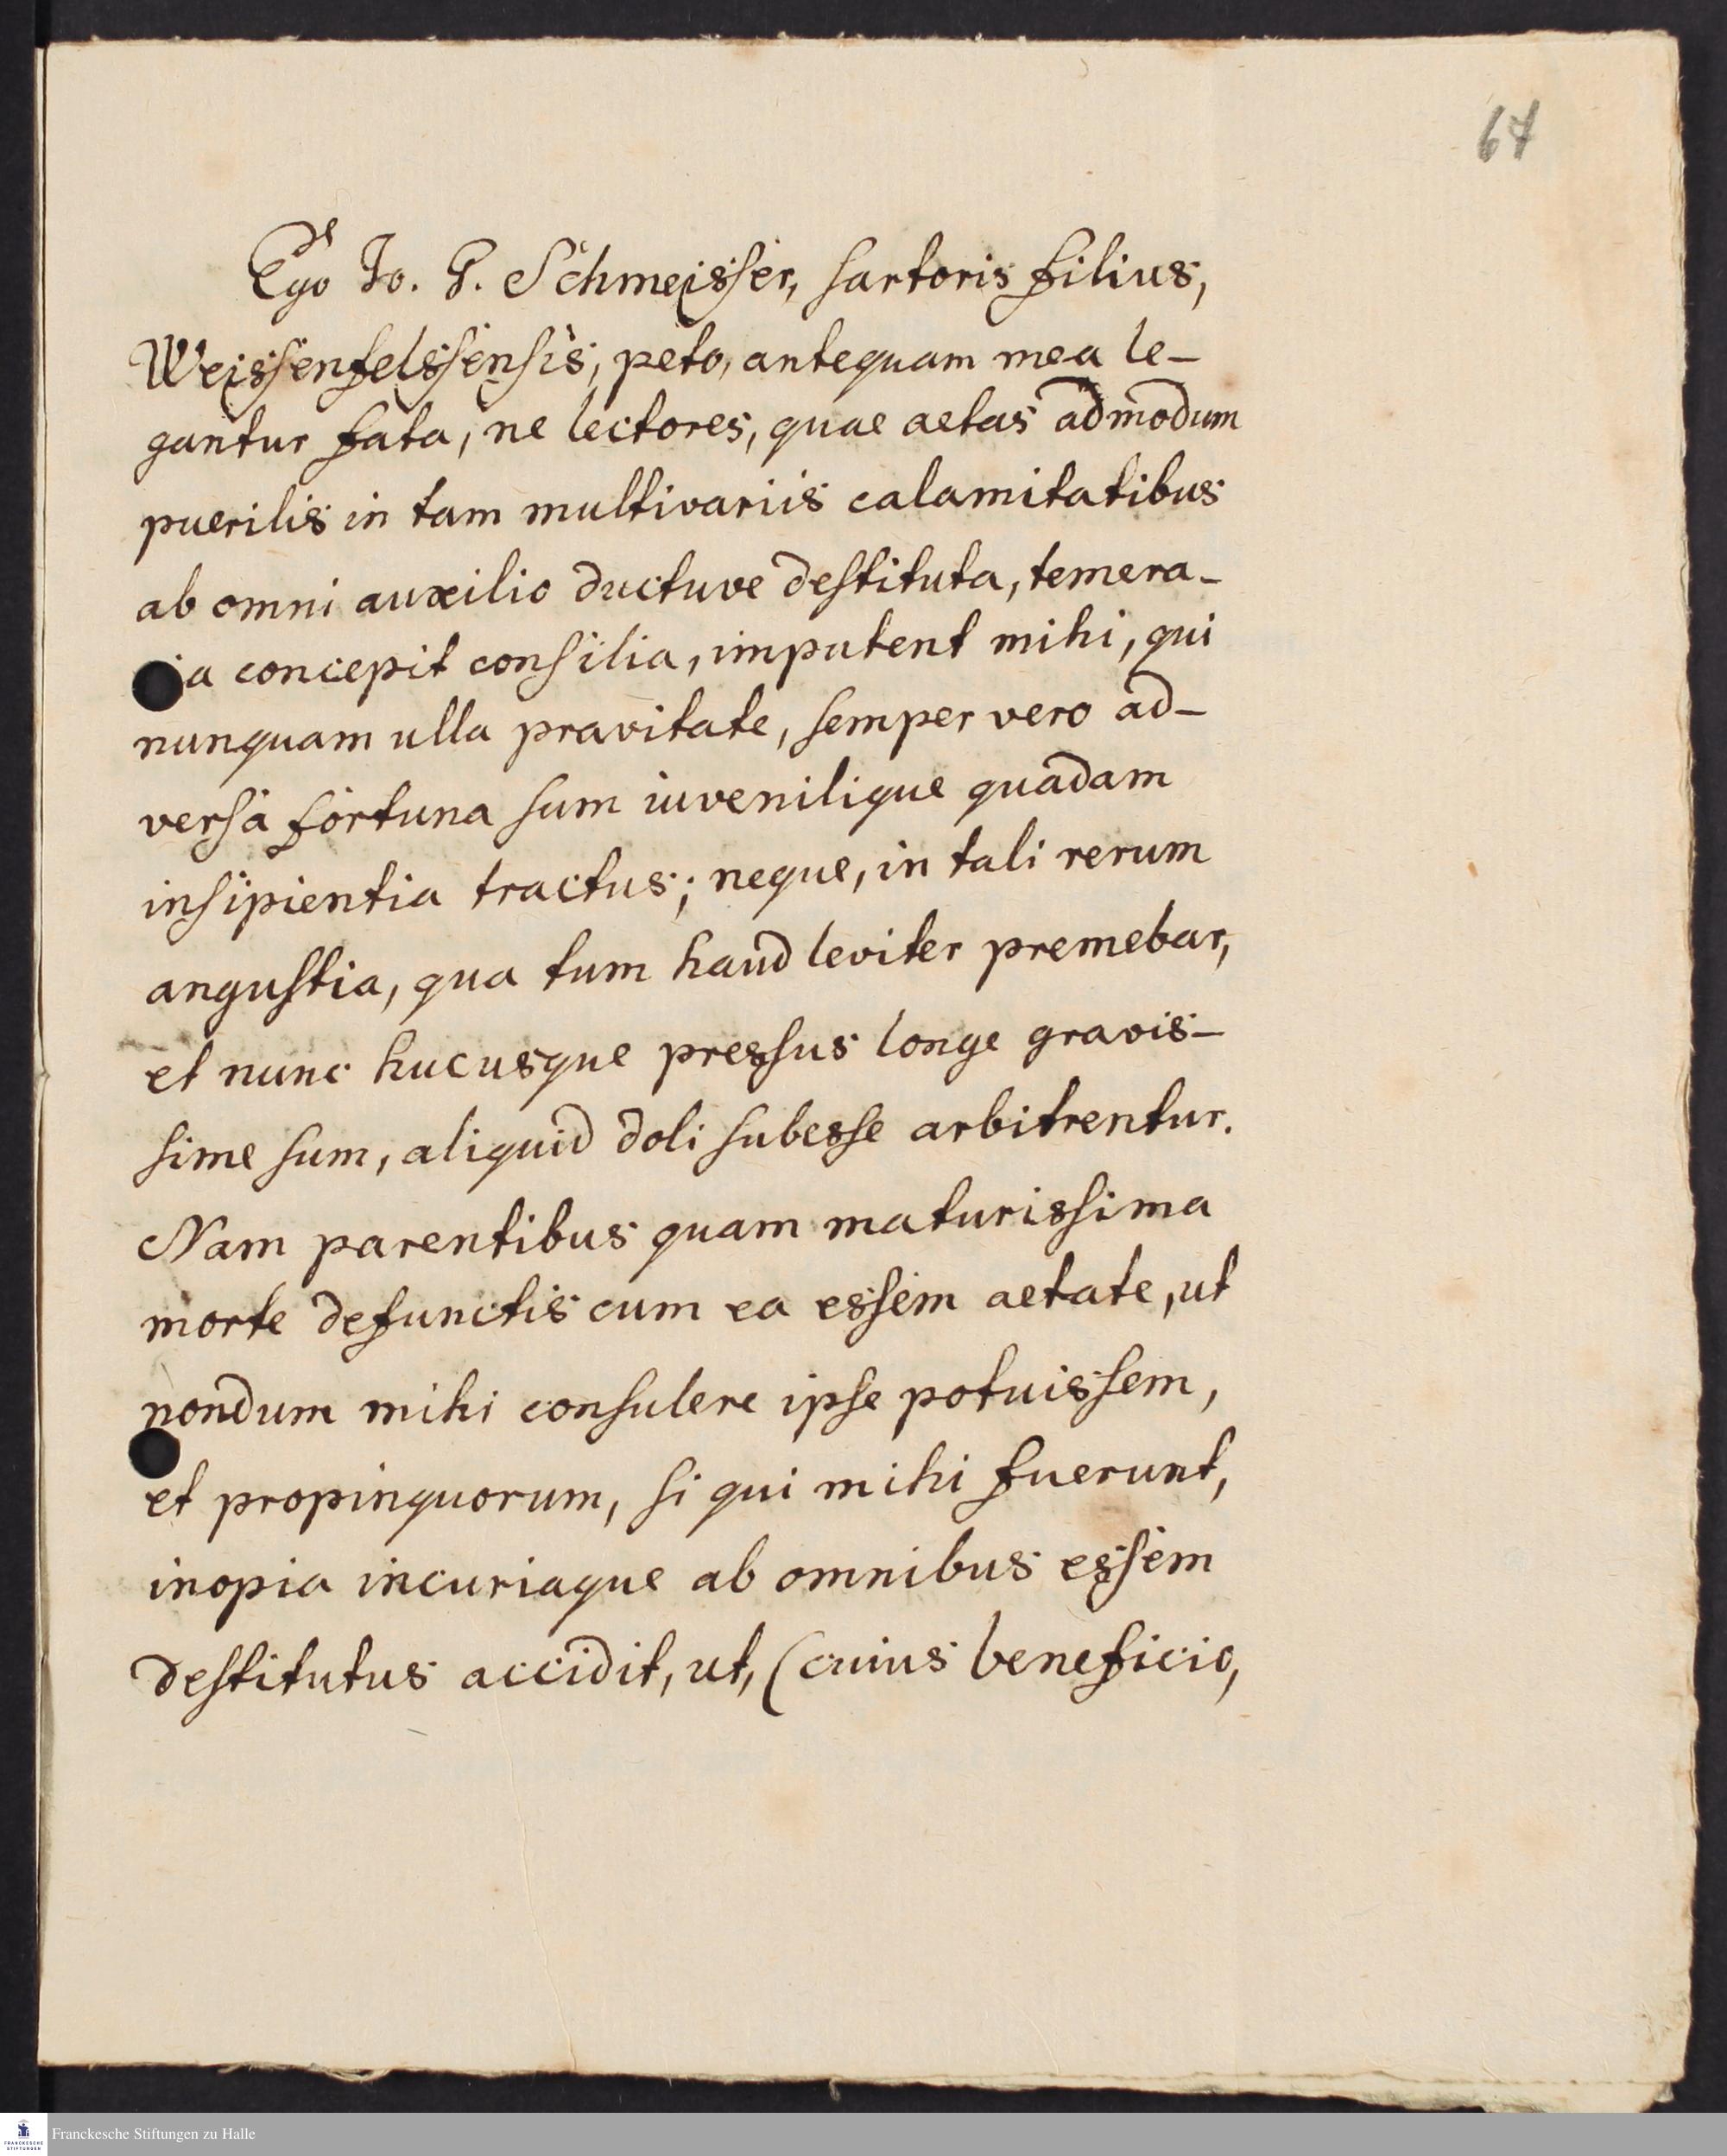 64
Ego Io. G. Schmeisser, sartoris filius,
Weissenfelssensis, peto, antequam mea le-
gantur fata, ne lectores, quae aetas admodum
puerilis in tam multivariis calamitatibus
ab omni auxilio ductuve destituta, temera-
ia concepit consilia, imputent mihi, qui
nunquam ulla pravitate, semper vero ad-
versa fortuna sum iuvenilique quadam
insipientia tractus; neque, in tali rerum
angustia, qua tum haud leviter premebar,
et nunc hucusque pressus longe gravis-
sime sum, aliquid doli subesse arbitrentur.
Nam parentibus quam maturissima
morte defunctis cum ea essem aetate, ut
nondum mihi consulere ipse potuissem,
et propinquorum, si qui mihi fuerunt,
inopia incuriaque ab omnibus essem
destitutus accidit, ut, (cuius beneficio,
FRANCKESCHE
STIFTUNGEN
Franckesche Stiftungen zu Halle